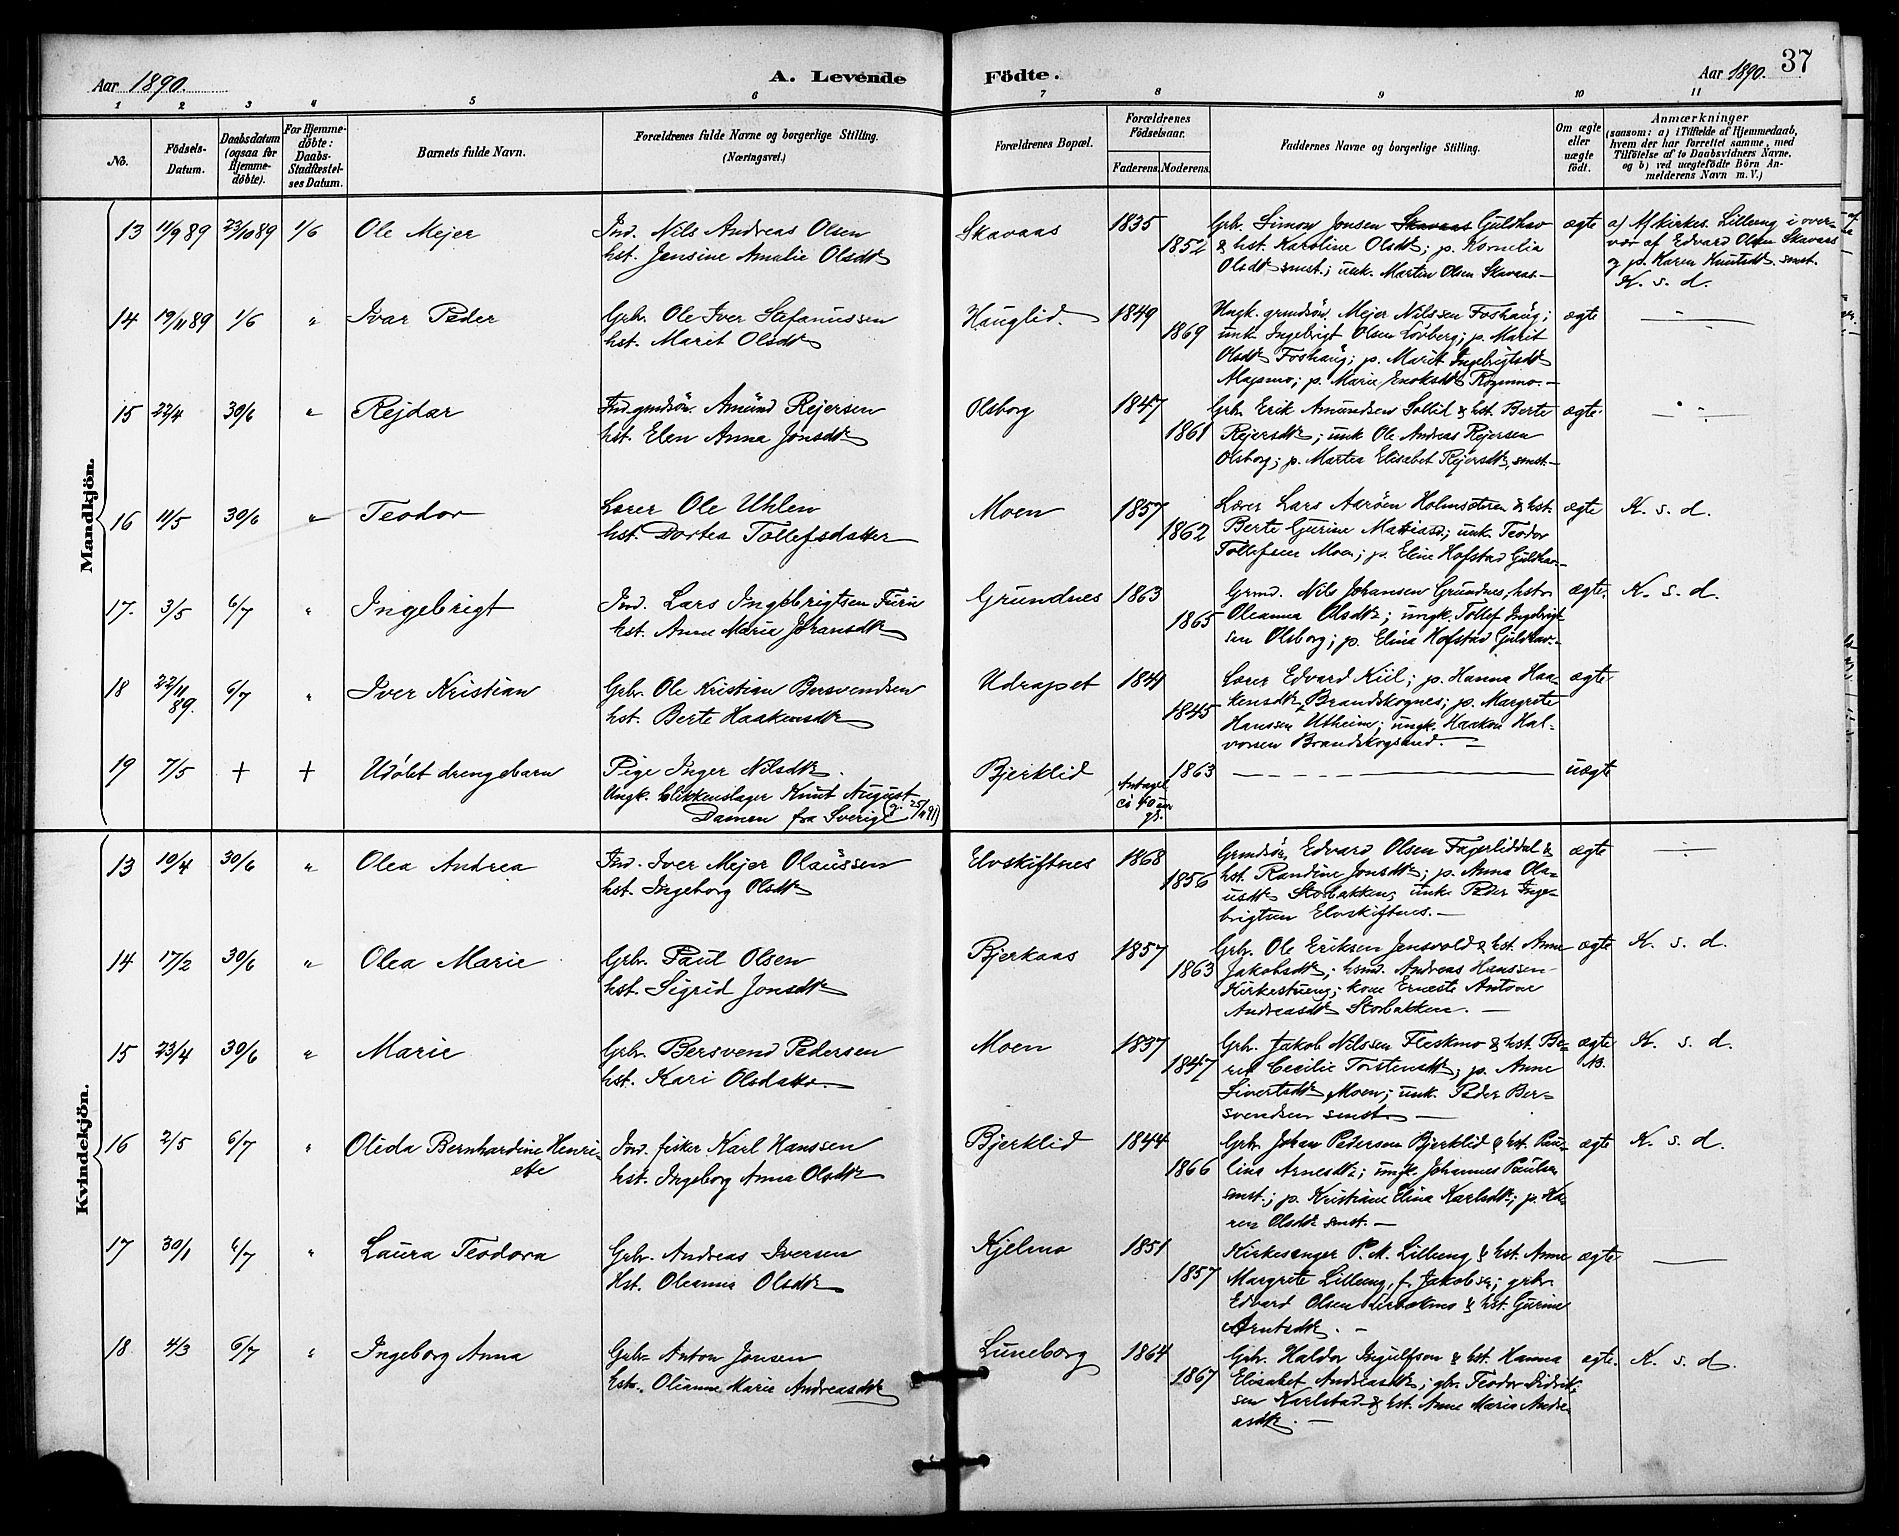 Aar 1890.
A. Levende Födte.
Aar 1890.
37
1 2 3 4 5 6 7 8 9 10 11
No.
Födsels-Datum.
Daabsdatum (ogsaa for Hjemme-døbte).
For Hjemme-døbte: Daabs-Stadfæstel-ses Datum.
Barnets fulde Navn.
Forældrenes fulde Navne og borgerlige Stilling. (Næringsvei.)
Forældrenes Bopæl.
Forældrenes Födselsaar.
Faderens. Moderens.
Faddernes Navne og borgerlige Stilling.
Om ægte eller uægte födt.
Anmærkninger
(saasom: a) i Tilfælde af Hjemmedaab, hvem der har forrettet samme, med Tilföielse af to Daabsvidners Navne, og b) ved uægtefödte Börn An-melderens Navn m. V.)
Mandkjön.
13 11/9 89 23/10 89 1/6 Ole Mejer
Ind. Nils Andreas Olsen
hst. Jensine Amalie Olsdtr
Skavaas 1835 1852
Grb. Simon Jonsen Skavaas Guldhav
& hst. Karoline Olsdtr; p. Kornelia
Olsdtr smst.; unk. Martin Olsen Skavaas.—
ægte
a) Af kirkes. Lilleng i over-
vær af Edvard Olsen Skavaas
og p. Karen Knutsdtr. smst.
K. s. d.
14 19/11 89 1/6 " Ivar Peder
Grbr. Ole Iver Stefanussen
hst. Marit Olsdtr
Hauglid. 1849 1869
Ungk. grmdsøn. Mejer Nilssen Foshaug;
unk. Ingebrigt Olsen Lovberg; p. Marit
Olsdtr Foshaug; p. Marit Ingebrigtsdtr
Alapmo; p. Marie Enoksdtr Rognmo.—
ægte
15 22/4 30/6 " Rejdar
Ind. grmdsøn. Amund Rejersen
hst. Elen Anna Jonsdtr
Olsborg 1847 1861
Grb. Erik Amundsen Sollid & hst. Berte
Rejersdtr; unk Ole Andreas Rejersen
Olsborg; p. Martea Elisabet Rejersdtr, smst.—
ægte.
16 11/5 30/6 " Teodor
Lærer Ole Uhlen
hst. Dortea Tollefsdatter
Moen 1857 1862
Lærer Lars Aarøen Holmsøtren & hst.
Berte Gurine Matiasd; unk. Teodor
Tollefsen Moen; p. Eline Hofstad Guldhav.—
ægte K. s. d.
17. 3/5 6/7 " Ingebrigt
Ind. Lars Ingebrigtsen Furu
hst. Anne Maria Johansdtr
Grundnes 1863 1865
Grmd. Nils Johansen Grundnes, hstr.
Oleanna Olsdtr; ungk. Tollef Ingebrigt-
sen Olsborg; p. Elina Hofstad Guldhav.—
ægte. K. s. d.
18 22/11 89. 6/7 " Iver Kristian
Grbr. Ole Kristian Bersvendsen
hst. Berte Haakensdtr
Udrapet 1841 1845
Lærer Edvard Kiil; p. Hanna Haa-
kensdtr Brandskognes; p. Margrete
Hanssen Utheim; ungk. Haakon Hal-
vorsen Brandskogsund.—
ægte
19 7/5 + + Udøbt drengebarn
Pige Inger Nilsdtr.
Ungk. blikkenslager Knut August
Damen fra Sverige 25/11 91)
Bjerklid Antagel. ci 40 aar gl. 1863
uægte
Kvindekjön.
13 10/4 30/6 " Olea Andrea
Ind. Iver Mejer Olaussen
hst. Ingeborg Olsdtr
Elvskiftnes 1868 1856
Grmdsøn. Edvard Olsen Fagerliddal &
hst. Randine Jonsdtr; p. Anna Ola-
usdtr Storbakken; unk. Peder Inge-
brigtsen Elvskiftnes.—
ægte
14 17/2 30/6 " Olea Marie
Grbr. Paul Olsen
hst. Sigrid Jonsdtr
Bjerkaas 1857 1863
Grb. Ole Eriksen Jensvold & hst. Anne
Jakobsdtr; hsmd. Andreas Hanssen
Kirkestueng; kone Erneste Antone
Andreasdtr Storbakken.—
ægte K. s. d.
15 23/4 30/6 " Marie
Grbr. Bersvend Pedersen
hst. Kari Olsdatter
Moen 1837 1847
Grb. Jakob Nilssen Fleskmo & hst. Be-
ret Cecilie Torstensdtr; p. Anne
Sivertsdtr, Moen; unk. Peder Ber-
svendsen smst.—
ægte NB. K. s. d.
16 2/5 6/7 " Olida Bernhardine Henri-
ette
Ind. fisker Karl Hanssen
hst. Ingeborg Anna Olsdtr
Bjerklid 1844 1866
Grb. Johan Pedersen Bjerklid & hst. Pau-
lina Arnesdtr; ungk. Johannes Paulsen
smst.; p. Kristiane Elina Karlsdtr; p. Ka-
ren Olsdtr smst.—
ægte K. s. d.
17 30/1 6/7 " Laura Teodora
Grbr. Andreas Iversen
Hst. Oleanna Olsdtr
Kjelmo 1851 1857
Kirkesanger P. M. Lilleng & hst. Anne
Margrete Lilleng, f. Jakobsen; grbr.
Edvard Olsen & hst. Gurine
Arntsdtr.—
ægte
18 4/3 6/7 " Ingeborg Anna
Grbr. Anton Jonsen
Hst. Olianne Marie Andreasdtr
Luneborg 1864 1867
Grbr. Haldor Ingulfsen & hst. Hanna
Elisabet Andreasdtr; gbr. Teodor Didrik-
sen Karlstad & hst. Anne Maria Andre-
asdtr.—
ægte. K. s. d.